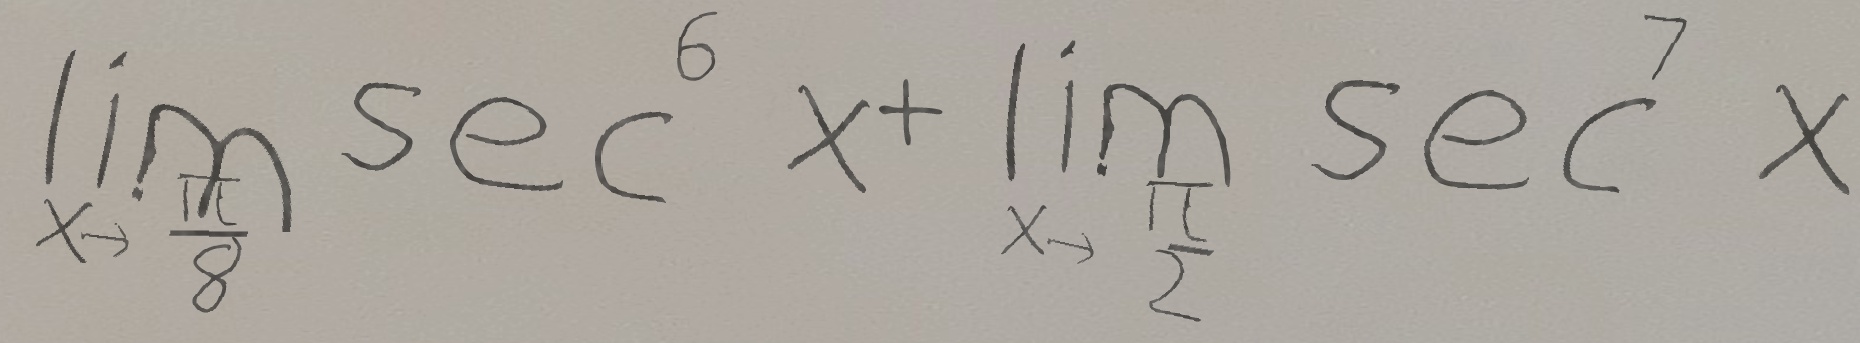 \lim_{x \to \frac{\pi}{8}} \sec^6 x + \lim_{x \to \frac{\pi}{2}} \sec^7 x